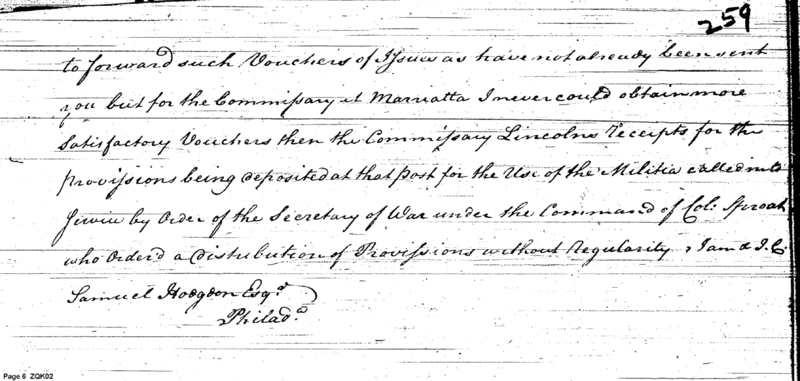 259
to forward such Vouchers of Issues as have not already been sent
you but for the Commissary at Marriatta I never could obtain more
Satisfactory Vouchers then the Commissary Lincolns receipts for the
provissions being deposited at that post for the Use of the Militia called into
Servie by Order of the Secretary of War under the Command of Col: Sproat
who Order'd a distribution of Provissions without Regularity I am &
Samuel Hodgdon Esqr.
Philada.
Page 6 ZQK02